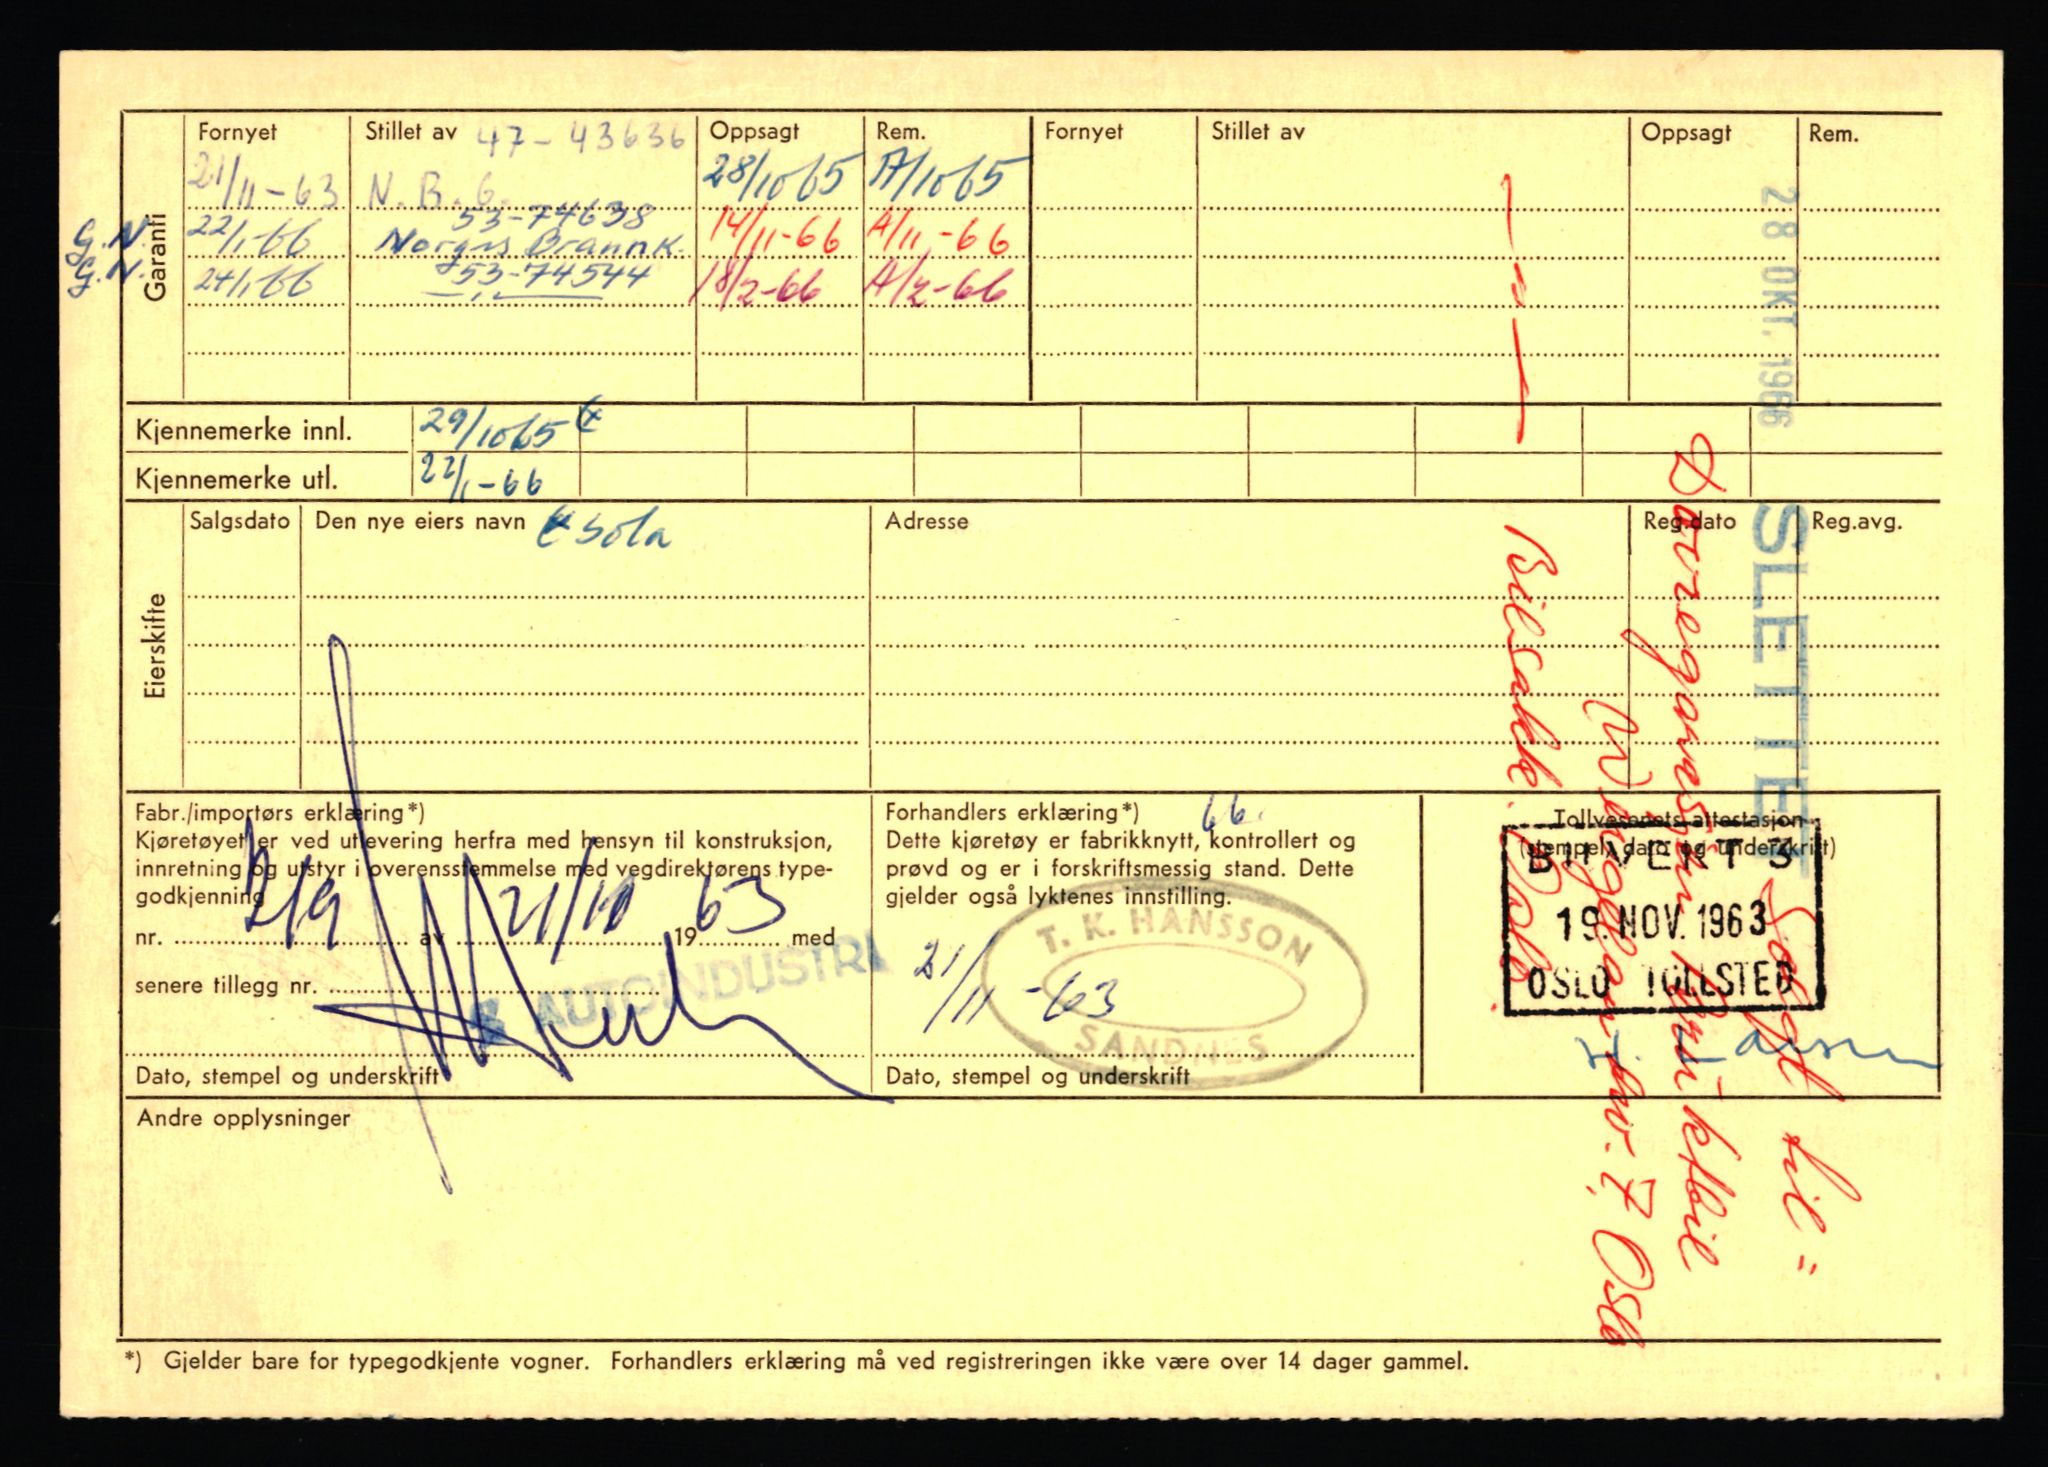 Garanti
Fornyet Stillet av 47-43636 Oppsagt Rem. Fornyet Stillet av Oppsagt Rem.
21/11-63 N.B.G. 28/10 65 A/10 65
53-74638
G.N. 22/1-66 Norges Brannk. 14/11-66 A/11-66
G.N. 24/1-66 53-74544 18/2-66 A/2-66
28 OKT. 1966
Kjennemerke innl. 29/10 65
Kjennemerke utl. 22/1-66
SLETTET
Eierskifte
Salgsdato Den nye eiers navn Adresse Reg.dato Reg.avg.
Sola
Solgt til =
Wergelandsv. 7, Oslo
Oslo
Fabr./importørs erklæring*)
Kjøretøyet er ved utlevering herfra med hensyn til konstruksjon,
innretning og utstyr i overensstemmelse med vegdirektørens type-
godkjenning
nr. 219 av 21/10 1963 med
senere tillegg nr.
AUTOINDUSTRI
Dato, stempel og underskrift
Forhandlers erklæring*) 66.
Dette kjøretøy er fabrikknytt, kontrollert og
prøvd og er i forskriftsmessig stand. Dette
gjelder også lyktenes innstilling.
T. K. HANSSON
SANDNES
21/11-63
Dato, stempel og underskrift
Tollvesenets attestasjon
(stempel, dato og underskrift)
BILVEKT 3
19. NOV. 1963
OSLO TOLLSTED
Andre opplysninger
*) Gjelder bare for typegodkjente vogner. Forhandlers erklæring må ved registreringen ikke være over 14 dager gammel.